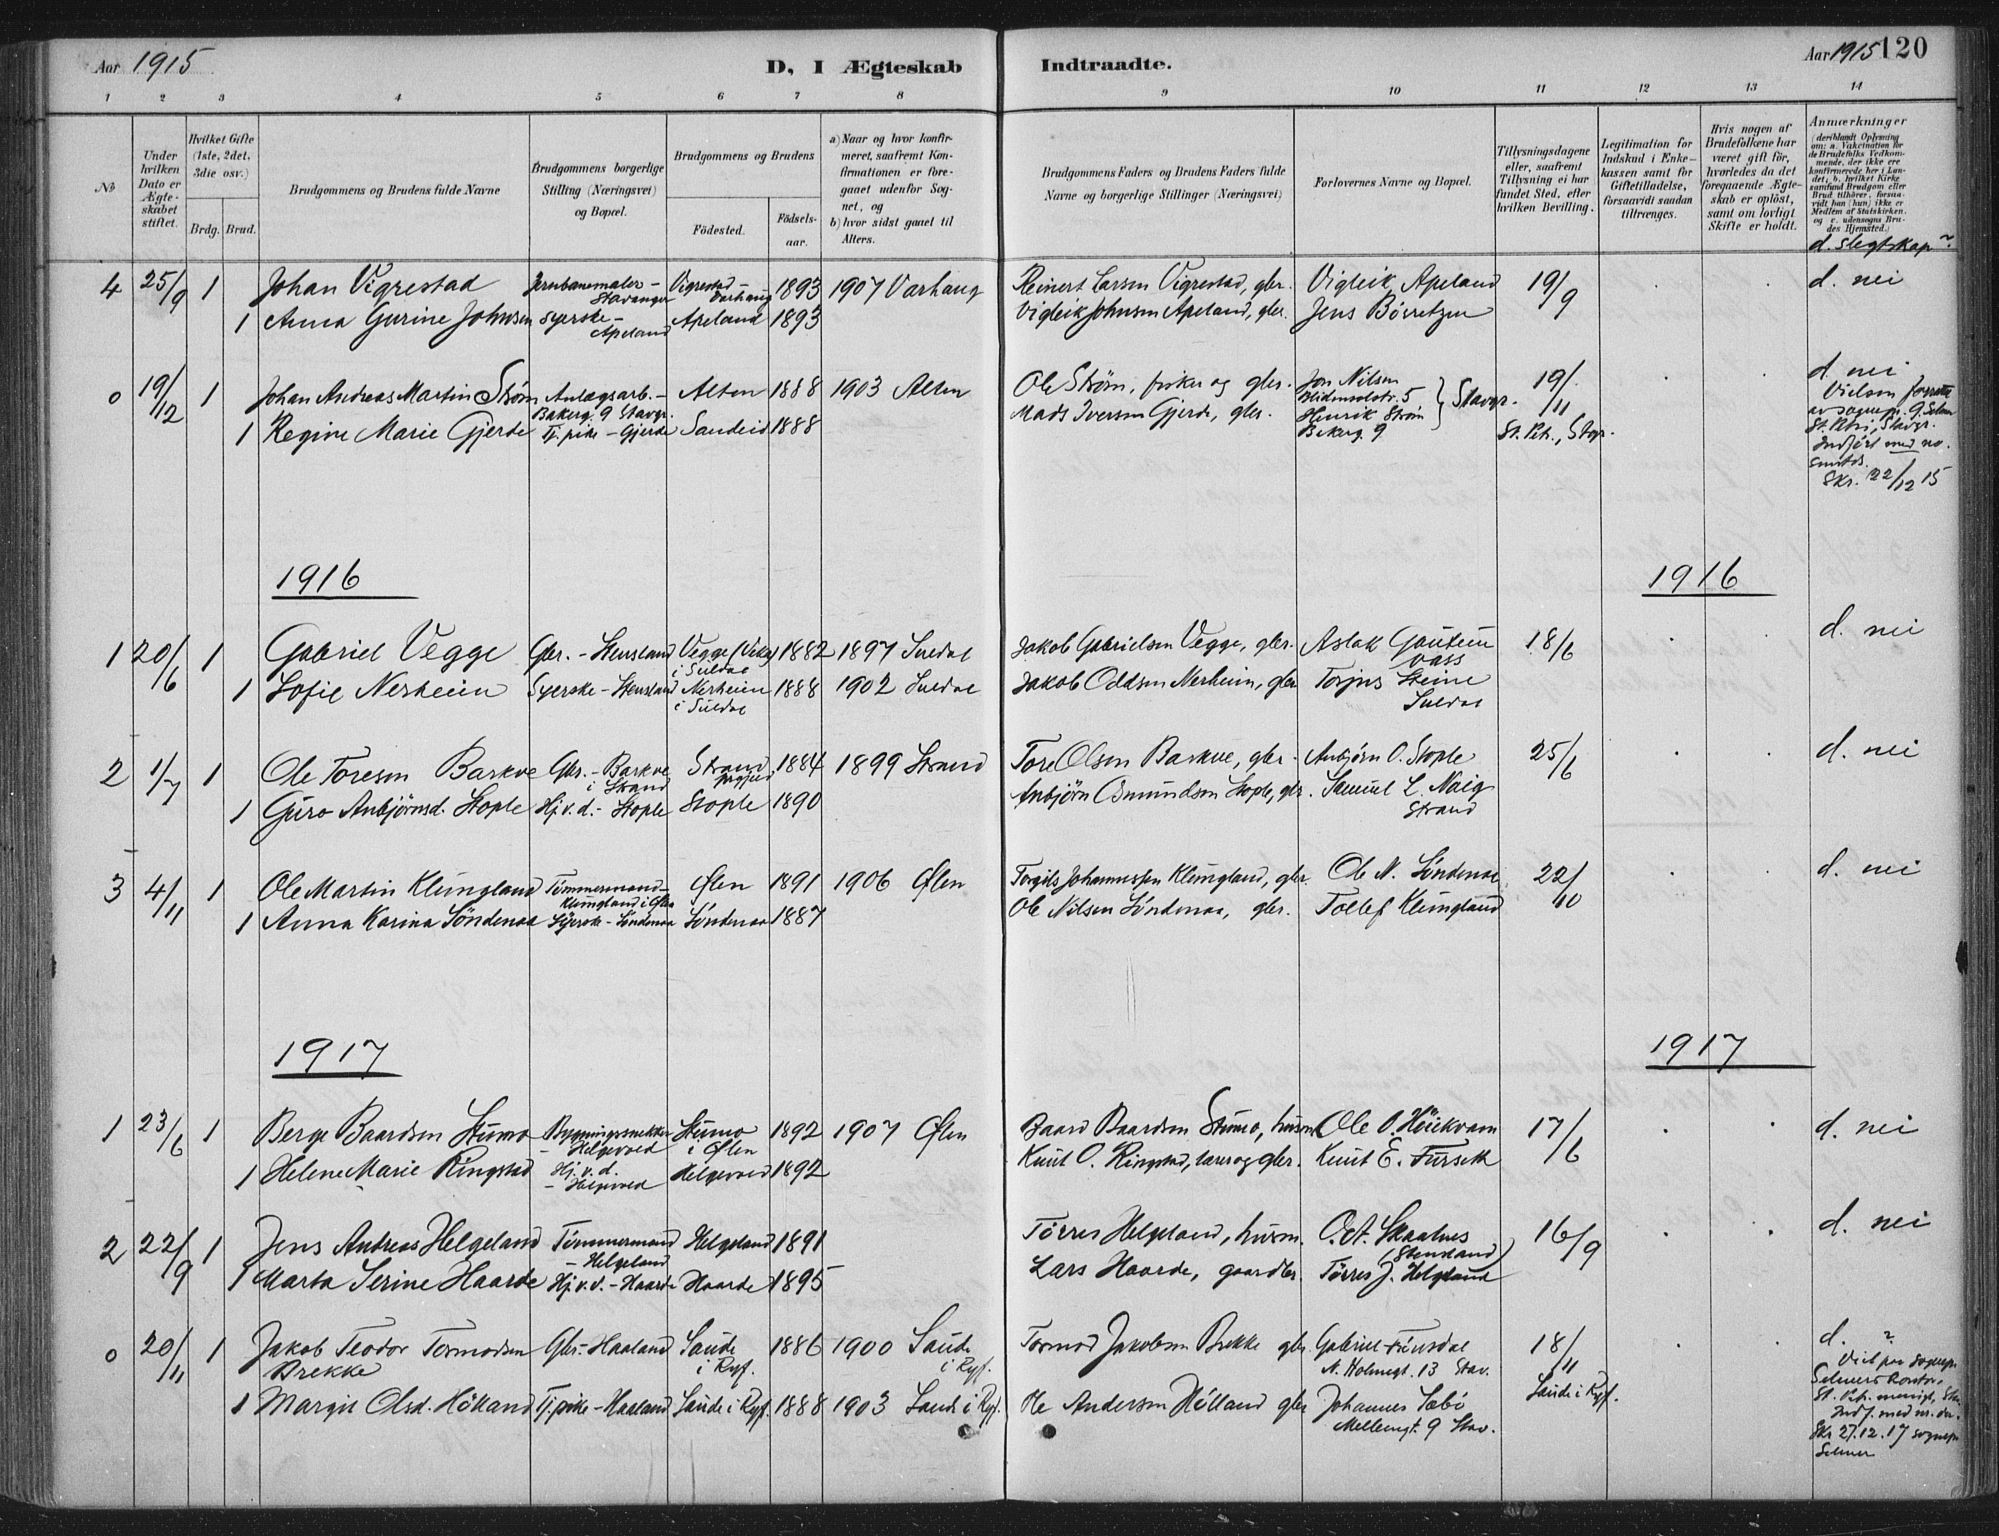 Aar 1915
D, I Ægteskab
Indtraadte.
Aar 1915 120
1 2 3 4 5 6 7 8 9 10 11 12 13 14
No
Under hvilken Dato er Ægteskabet stiftet.
Hvilket Gifte (1ste, 2det, 3die osv.)
Brdg. Brud.
Brudgommens og Brudens fulde Navne
Brudgommens borgerlige Stilling (Næringsvei) og Bopæl.
Brudgommens og Brudens
Födested.
Födselsaar.
a) Naar og hvor konfirmeret, saafremt Konfirmationen er foregaaet udenfor Sognet, og
b) hvor sidst gaaet til Alters.
Brudgommens Faders og Brudens Faders fulde Navne og borgerlige Stillinger (Næringsvei)
Forlovernes Navne og Bopæl.
Tillysningsdagene eller, saafremt Tillysning ei har fundet Sted, efter hvilken Bevilling.
Legitimation for Indskud i Enkekassen samt for Giftetilladelse, forsaavidt saadan tiltrænges.
Hvis nogen af Brudefolkene har været gift för, hvorledes da det foregaaende Ægteskab er oplöst, samt om lovligt Skifte er holdt.
Anmærkninger (deriblandt Oplysning om: a. Vakcination for de Brudefolks Vedkommende, der ikke ere konfirmerede her i Landet, b. hvilket Kirkesamfund Brudgom eller Brud tilhörer, forsaavidt han (hun) ikke er Medlem af Statskirken, og c. udensogns Brudes Hjemsted.)
d. Slegtskap?
4 25/9 1 Johan Vigrestad Jernbanemaler - Stavanger Vigrestad - Varhaug 1893 1907 Varhaug Reinert Larsen Vigrestad, gbr. Vigleik Apeland 19/9 d. nei
1 Anna Gurine Johnsen syerske - Apeland Apeland 1893 Vigleik Johnsen Apeland, gbr. Jens Børretzen
0 19/12 1 Johan Andreas Martin Strøm Anlægsarb. - Bakerg. 9 Stavgr. Alten 1888 1903 Alten Ole Strøm, fisker og gbr. Jon Nilsen 5 Stavgr. 19/11 d. nei
1 Regine Marie Gjerde Tj. pike - Gjerde Sandeid 1888 Mads Iversen Gjerde, gbr. Henrik Strøm Bakerg. 9 St. Pet., Stvgr.
Vielsen forrettet av sognepr. St. Petri, Stavgr. Indført med no. Skr. 22/12 15
1916
1916
1 20/6 1 Gabriel Vegge Gbr. - Stensland Vegge i Suldal 1882 1897 Suldal Jakob Gabrielsen Vegge, gbr. Aslak 18/6 d. nei
1 Sofie Nerheim Syerske - Stensland Nerheim i Suldal 1888 1902 Suldal Jakob Oddsen Nerheim, gbr Torjus Steine Suldal
2 1/7 1 Ole Toresen Barkve Gbr. - Barkve i Strand Strand prgjeld 1884 1899 Strand Tore Olsen Barkve, gbr. Anbjørn O. Stople 25/6 d. nei
1 Guro Anbjörnsd. Stople Hj. v. d. - Stople Stople 1890 Anbjörn Osmundsen Stople, gbr. Samuel L. Strand
3 4/11 1 Ole Martin Klungland Tömmermand - Klungland i Ølen Ølen 1891 1906 Ølen Torgils Johannessen Klungland, gbr. Ole N. Söndenaa 22/10 d. nei
1 Anna Karina Söndenaa Syerske - Söndenaa Söndenaa 1887 Ole Nilsen Söndenaa, gbr. Tollef Klungland
1917
1917
1 23/6 1 Berge Baardsen Stumo Bygningssnekker - Helgevold Stumo i Ølen 1892 1907 Ølen Baard Baardsen Stumo, husm. Ole O. Höikvam 17/6 d. nei
1 Helene Marie Ringstad Hj. v. d. - Helgevold Helgevold 1892 Knut O. Ringstad, lærer og gbr. Knut E. Furseth
2 22/9 1 Jens Andreas Helgeland Tömmermand - Helgeland Helgeland 1891 Törres Helgeland, husm. O. A. Skaalnes (Stensland) 16/9 d. nei
1 Marta Serine Haarde Hj. v. d. - Haarde Haarde 1895 Lars Haarde, gaardbr. Törres J. Helgeland
0 20/11 1 Jakob Teodor Tormodsen Brekke Gbr. - Haaland Saude i Ryf. 1886 1900 Saude i Ryf. Tormod Jakobsen Brekke gbr. Gabriel N. Holmegt. 13 Stav. 18/11 d. ?
1 Margit Olsd. Hölland Tj. pike - Haaland Saude i Ryf. 1888 1903 Saude i Ryf. Ole Andersen Hölland gbr Johannes Sæbö Mellemgt. 9 Stav. Saude i Ryf.
Viet paa sognepr. Selmers kontor, St. Petri menigh., Stav. Indf. med nr. Skr 27.12.17 sognepr Selmer